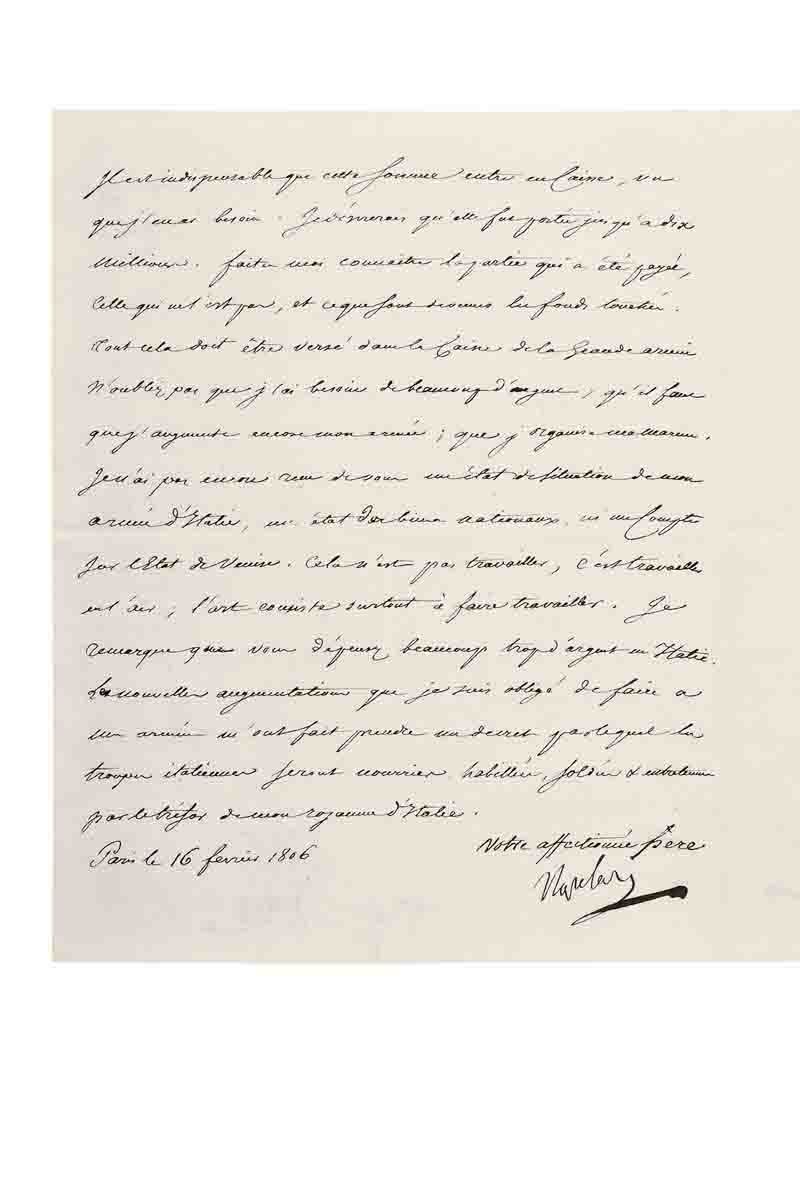 Il est indispensable que cette somme entre en Caisse, vu
que j'en ai besoin. Je désirerais qu'elle fut portée jusqu'à dix
Millions. faites moi connaitre la partie qui a été payée,
Celle qui ne l'est pas, et ce que sont devenus les fonds touchés.
Tout cela doit être versé dans la Caisse de la Grande armée
N'oubliez pas que j'ai besoin de beaucoup d'argent, qu'il faut
que j'augmente encore mon armée; que j'organise ma marine.
Je n'ai pas encore reçu de vous un état de situation de mon
armée d'Italie, un état des biens nationaux, ni un Compte
sur l'Etat de Venise. Cela n'est pas travailler, c'est travailler
en l'air; l'art consiste surtout à faire travailler. Je
remarque que vous dépensez beaucoup trop d'argent en Italie.
Les nouvelles augmentations que je suis obligé de faire a
mes armées m'ont fait prendre un decret par lequel les
troupes italiennes seront nourries, habillées, soldées & entretenues
par le trésor de mon royaume d'Italie.
Paris le 16 fevrier 1806
Votre affectionné Pere
Napoleon